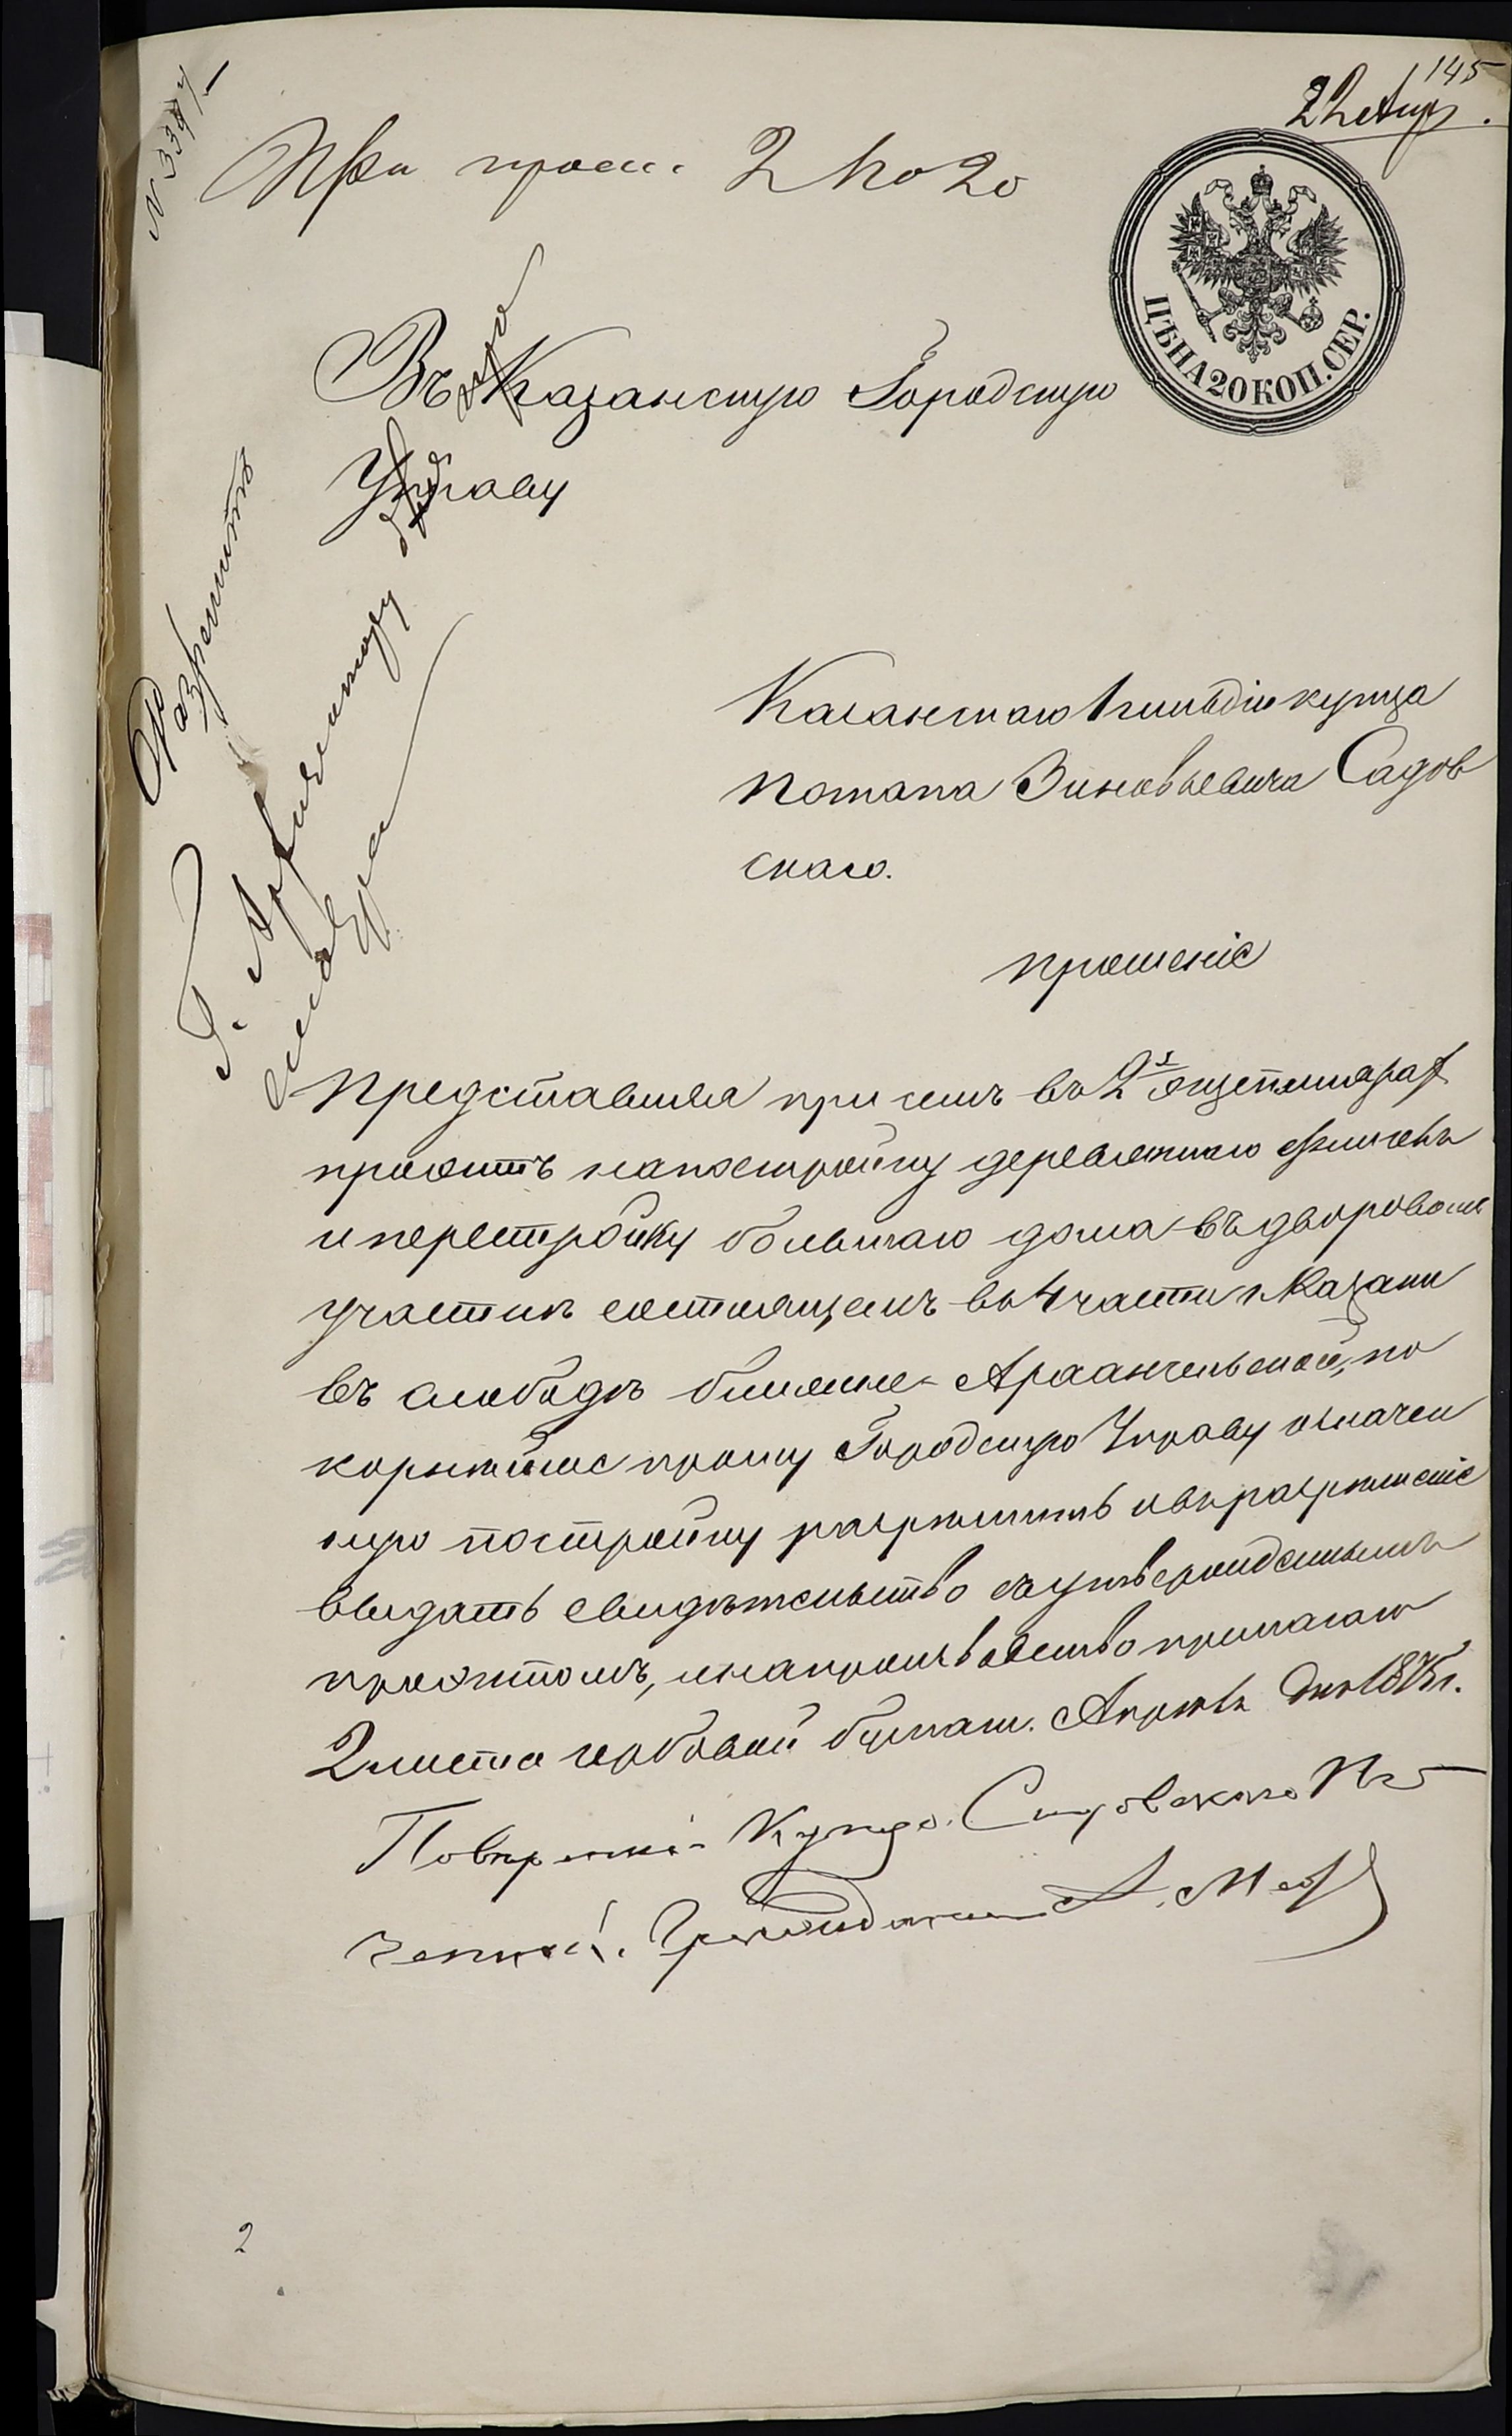 145
22 Апр.
N 3397
При прош. 2 по 20
ЦѢНА 20 КОП. СЕР.
Въ Казанскую Городскую
Управу
Разрешить
Г. Архитектору
Казанскаго 1 гильдіи купца
Потапа Зиновьевича Садов
скаго.
прошеніе
Представляя при семъ въ 2х экземплярах
проэктъ на постройку деревяннаго флигеля
и перестройку большаго дома въ дворовомъ
участкѣ состоящемъ въ 4 части г. Казани
въ слободѣ ближне-Архангельской, по
корнѣйше прошу Городскую Управу означен
ную постройку разрѣшить и въ разрѣшеніе
выдать свидѣтельство съ утвержденнымъ
проэктомъ, и на производство прилагаю
2 листа гербовой бумаги. Апрѣля дня 1875 г.
Повѣренный Купца Садовскаго По
четный Гражданинъ А. М
2